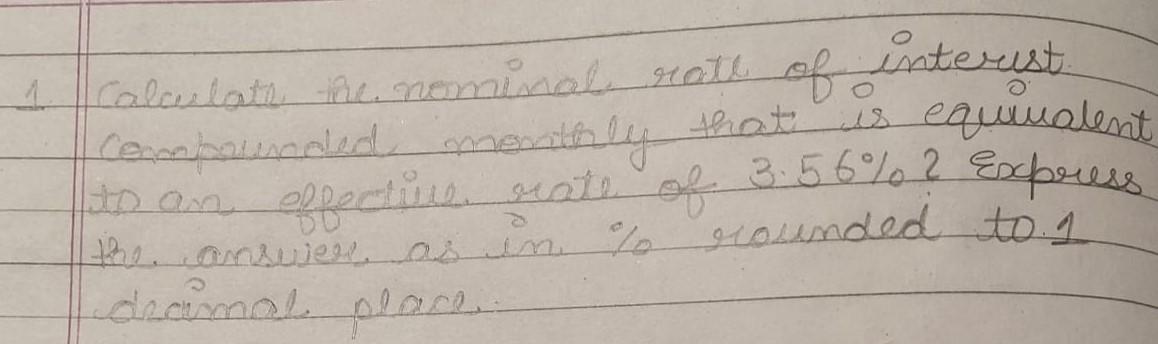 1 Calculate the nominal rate of interest
compounded monthly that is equivalent
to an effective rate of 3.56%? Express
the answer as in % rounded to 1
decimal place.